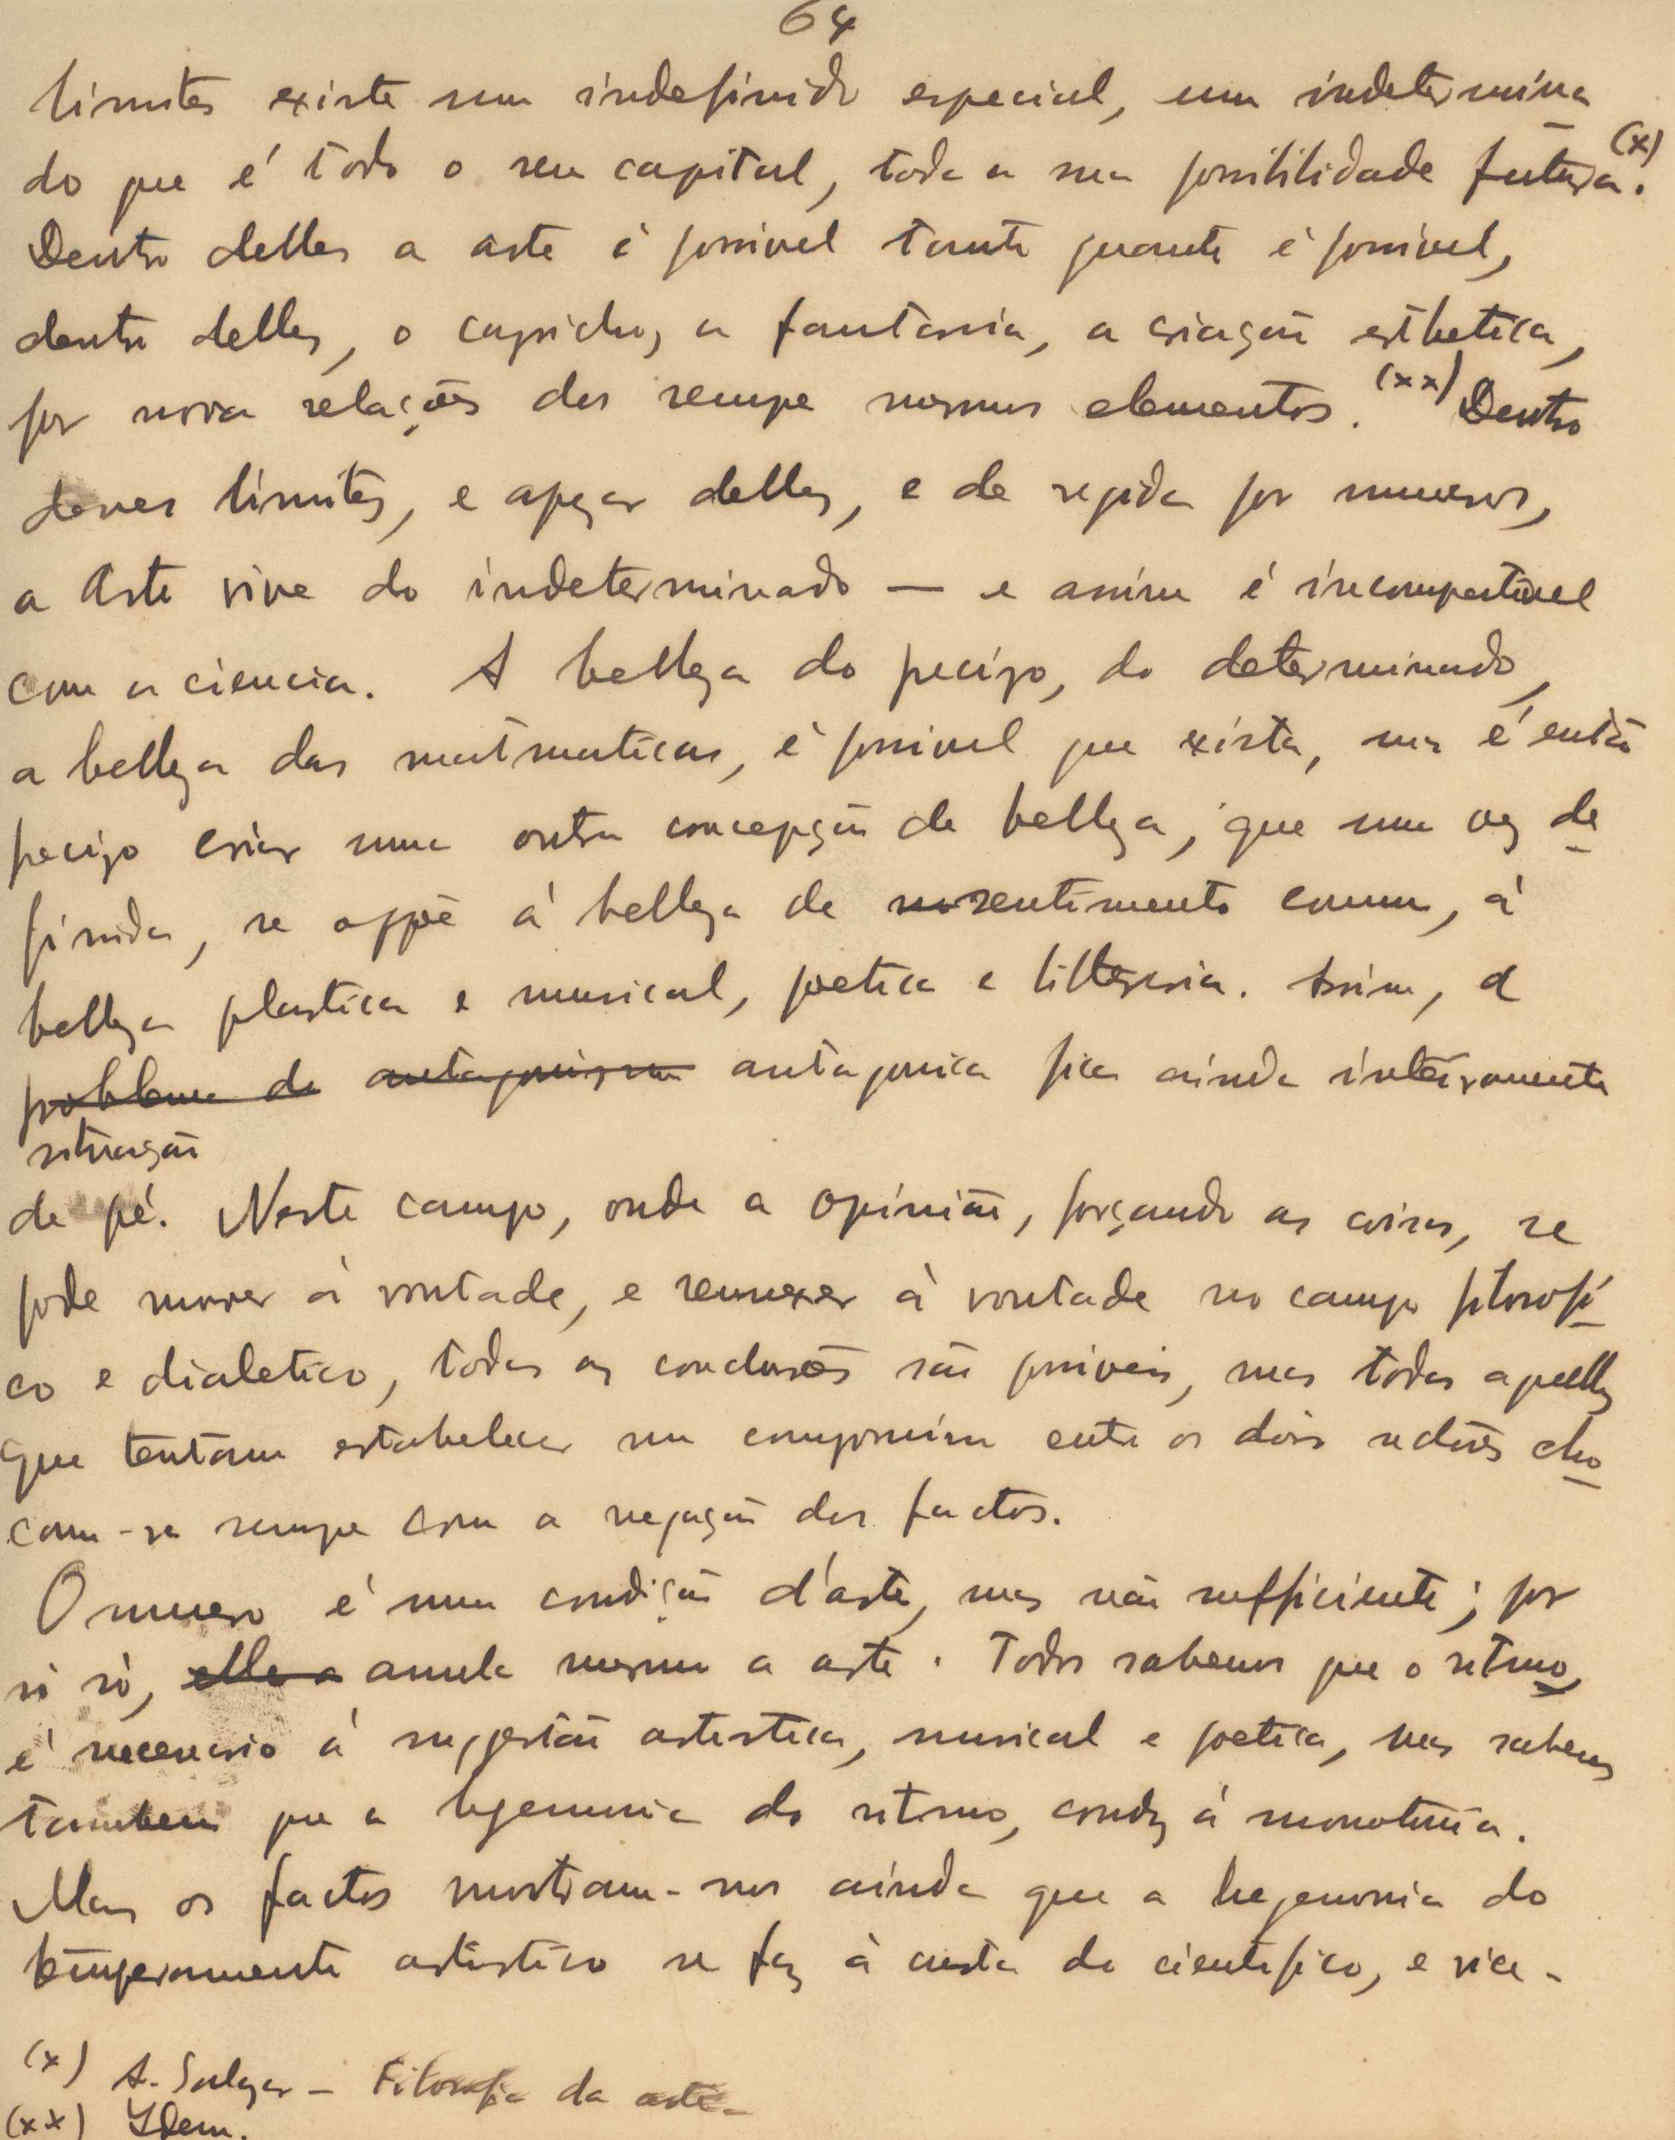 64
limites existe um indefinido especial, um indetermina
do que é todo o seu capital, toda a sua possibilidade futura. (x)
Dentro delles a arte é possivel tanto quanto é possivel,
dentro delles, o capricho, a fantasia, a criação esthetica,
por nova relações dos sempre mesmos elementos. (xx) Dentro
desses limites, e apezar delles, e de regida por numeros,
a Arte vive do indeterminado — e assim é incompativel
com a ciencia. A belleza do precizo, do determinado,
a belleza das matematicas, é possivel que exista, mas é então
precizo criar uma outra concepção de belleza, que uma vez de
finida, se oppõe á belleza de sentimento comum, á
belleza plastica e musical, poetica e litteraria. Assim, a
problema de antagonismo antagonica fica ainda inteiramente
situação
de pé. Neste campo, onde a opinião, forçando as coisas, se
pode mover á vontade, e remexer á vontade no campo filosofi
co e dialetico, todas as conclusões são possiveis, mas todas aquellas
que tentam estabelecer um compromisso entre os dois sectores cho
cam-se sempre com a negação dos factos.
O numero é uma condição d'arte, mas não sufficiente; por
si só, elle a anula mesmo a arte. Todos sabemos que o ritmo,
é necessario á suggestão artistica, musical e poetica, mas sabemos
tambem que a hegemonia do ritmo, conduz á monotonia.
Mas os factos mostram-nos ainda que a hegemonia do
temperamento artistico se faz á custa do cientifico, e vice-
(x) A. Salazar — Filosofia da arte.
(xx) Idem.